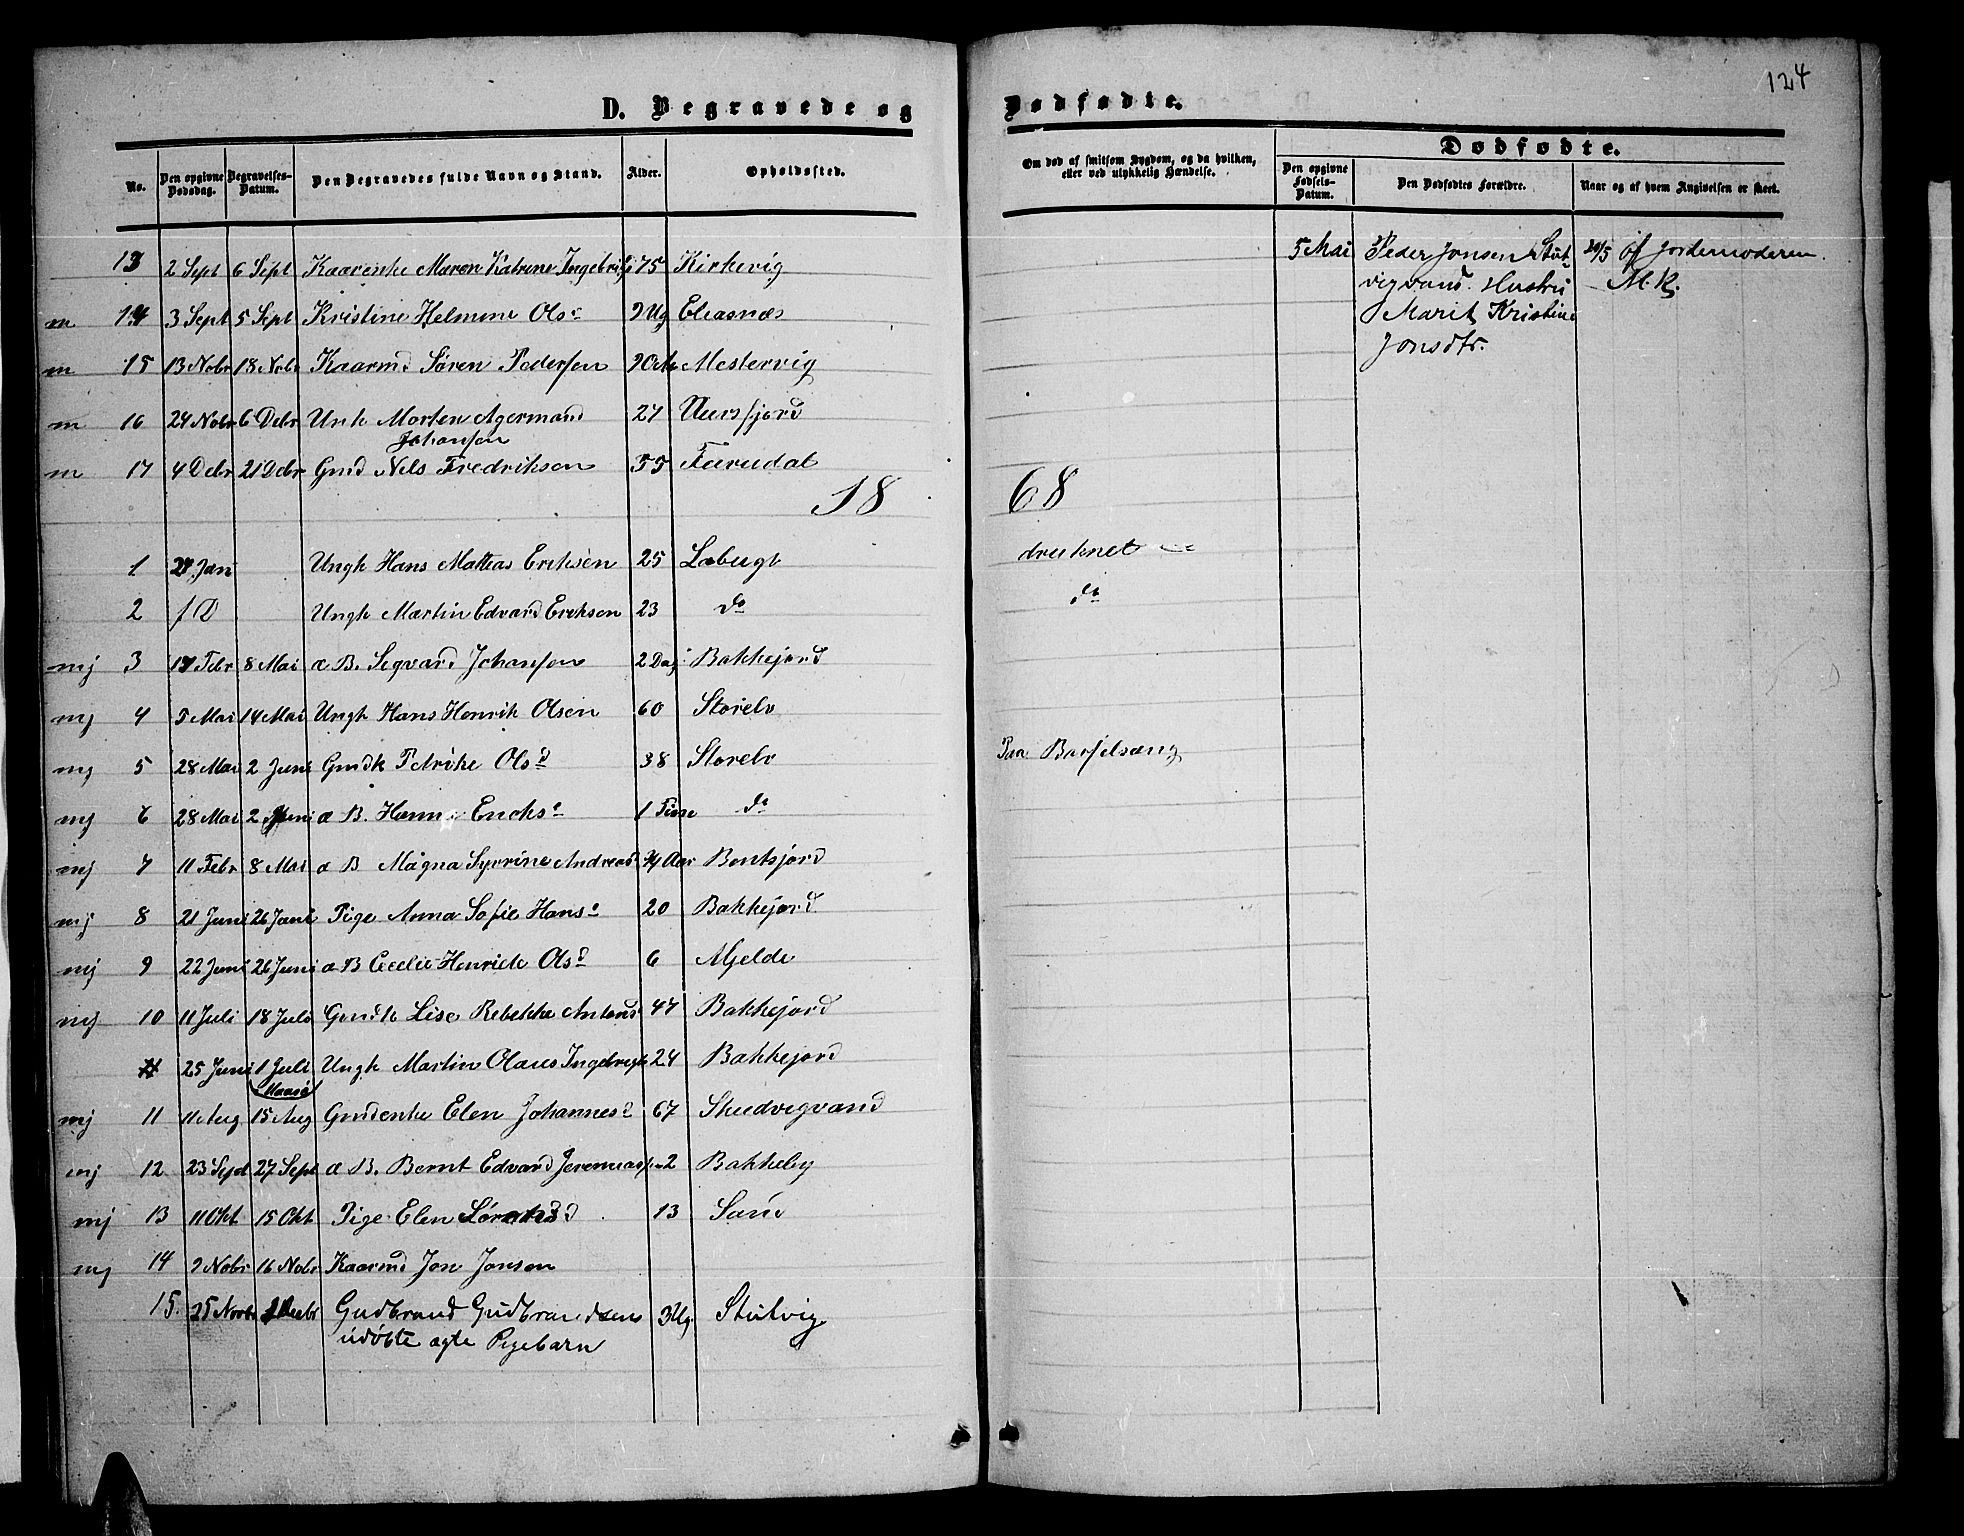 124
D. Begravede og Dødfødte.
No. Den opgivne Dødsdag. Begravelses-Datum. Den Begravedes fulde Navn og Stand. Alder. Opholdssted. Om død af smitsom Sygdom, og da hvilken, eller ved ulykkelig Hændelse. Dødfødte.
Den opgivne Fødsels-Datum. Den Dødfødtes Forældre. Naar og af hvem Angivelsen er skeet.
13 2 Sept 6 Sept Kaarenke Maren Katrine 75 Kirkevig 5 Mai Peder Jonsen Stut- af Jordemoderen
vigvand. Hustru M.K.
m 14 3 Sept 5 Sept Kristine Helmine Ols 9 Ug Eliasnæs Marit Kristine
Jonsdtr.
m 15 13 Nobr 18 Nobr Kaarmd Søren Pedersen Mestervig
m 16 24 Nobr 6 Debr Unk Morten Agermand 27 Aursfjord
Johansen
m 17 4 Debr 21 Debr Gmd Nels Fredriksen 55 Furudal
18 68
1 27 Jan Ungk Hans Mattias Eriksen 25 Labugt druknet
2 Ungk Martin Edvard Eriksen 23 do do
mj 3 17 Febr 8 Mai æ B. Segvard Johansen 2 Dag Bakkejord
mj 4 5 Mai 14 Mai Ungk Hans Henrik Olsen 60 Storelv
mj 5 28 Mai 2 Juni Gmdk Petrike Olsd 38 Storelv Paa Barselsæng
mj 6 28 Mai 2 Juni æ B. Hanna Ericks 1 Time do
mj 7 11 Febr 8 Mai æ B Magna Syvrine Andreasd 3/4 Aar Bentsjord
mj 8 21 Juni 26 Juni Pige Anna Sofie Hans 20 Bakkejord
mj 9 22 Juni 26 Juni æ B Cecelie Henrikke Olsd 6 Mjelde
mj 10 11 Juli 18 Juli Gmdk Lise Rebekke Antons 47 Bakkejord
25 Juni 1 Juli Ungk Martin Olaus Ingebregts 24 Bakkejord
Maasø
mj 11 11 Aug 15 Aug Gmdenke Elen Johannesd 67 Studvigvand
mj 12 23 Sept 27 Sept æ B. Bernt Edvard Jeremiassen 2 Bakkeby
mj 13 11 Okt 15 Okt Pige Elen 13 Sand
mj 14 9 Nobr 16 Nobr Kaarmd Jon Jonsen
15. 25 Novbr Gudbrand Gudbrandsens 3 Ug. Stutvig
udøbte ægte Pigebarn